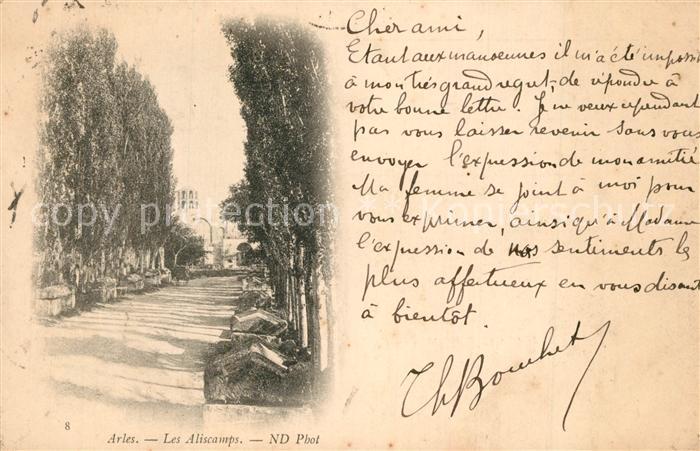 Cher ami,
Etant aux manœuvres il m'a été imposs
à mon très grand regret, de répondre à
votre bonne lettre. Je ne veux cependant
pas vous laisser revenir sans vous
envoyer l'expression de mon amitié
Ma femme se joint à moi pour
vous exprimer, ainsi qu'à Madame
l'expression de nos sentiments les
plus affectueux en vous disant
à bientôt.
8
Arles. — Les Aliscamps. — ND Phot
copy protected ** Kanierschutz